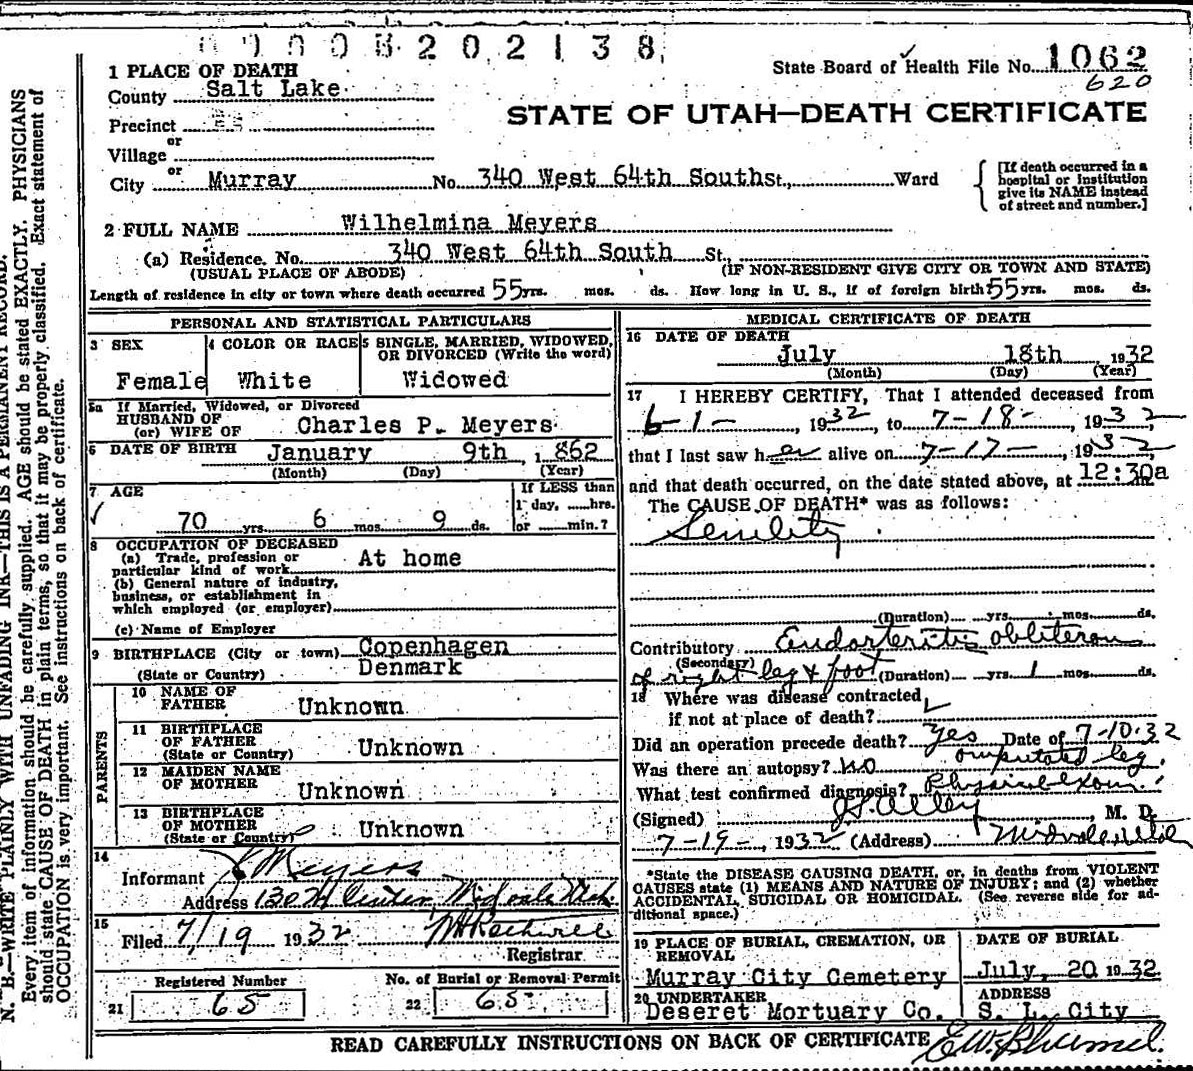 1 PLACE OF DEATH
State Board of Health File No. 1062
620
County Salt Lake
STATE OF UTAH—DEATH CERTIFICATE
Precinct
or
Village
or
City Murray No. 340 West 64th South St., Ward
[If death occurred in a hospital or institution give its NAME instead of street and number.]
2 FULL NAME Wilhelmina Meyers
(a) Residence. No. 340 West 64th South St.,
(USUAL PLACE OF ABODE) (IF NON-RESIDENT GIVE CITY OR TOWN AND STATE)
Length of residence in city or town where death occurred 55 yrs. mos. ds. How long in U. S., if of foreign birth 55 yrs. mos. ds.
PERSONAL AND STATISTICAL PARTICULARS
3 SEX
Female
4 COLOR OR RACE
White
5 SINGLE, MARRIED, WIDOWED,
OR DIVORCED (Write the word)
Widowed
5a If Married, Widowed, or Divorced
HUSBAND OF
(or) WIFE OF Charles P. Meyers
6 DATE OF BIRTH January 9th, 1862
(Month) (Day) (Year)
7 AGE
70 yrs. 6 mos. 9 ds.
If LESS than
1 day, ......hrs.
or ......min.?
8 OCCUPATION OF DECEASED
(a) Trade, profession or
particular kind of work At home
(b) General nature of industry,
business, or establishment in
which employed (or employer)
(c) Name of Employer
9 BIRTHPLACE (City or town) Copenhagen
(State or Country) Denmark
PARENTS
10 NAME OF
FATHER Unknown
11 BIRTHPLACE
OF FATHER Unknown
(State or Country)
12 MAIDEN NAME
OF MOTHER Unknown
13 BIRTHPLACE
OF MOTHER Unknown
(State or Country)
14
Informant Meyers
Address 130 Center, Midvale Utah.
15
Filed 7/19 1932
Registrar
Registered Number
21 65
No. of Burial or Removal Permit
22 65
MEDICAL CERTIFICATE OF DEATH
16 DATE OF DEATH
July 18th 1932
(Month) (Day) (Year)
17 I HEREBY CERTIFY, That I attended deceased from
6-1-, 1932, to 7-18-, 1932,
that I last saw her alive on 7-17-, 1932,
and that death occurred, on the date stated above, at 12:30a
The CAUSE OF DEATH* was as follows:
Senility
(Duration) yrs. mos. ds.
Contributory Endarteritis obliterans
(Secondary)
of right leg & foot (Duration) yrs. 1 mos. ds.
18 Where was disease contracted
if not at place of death?
Did an operation precede death? Yes Date of 7-10-32
amputated leg.
Was there an autopsy? No
What test confirmed diagnosis? Physical exam.
(Signed) Alley, M. D.
7-19-, 1932 (Address) Midvale, Utah
*State the DISEASE CAUSING DEATH, or, in deaths from VIOLENT
CAUSES state (1) MEANS AND NATURE OF INJURY; and (2) whether
ACCIDENTAL, SUICIDAL OR HOMICIDAL. (See reverse side for ad-
ditional space.)
19 PLACE OF BURIAL, CREMATION, OR
REMOVAL
Murray City Cemetery
DATE OF BURIAL
July, 20 1932
20 UNDERTAKER
Deseret Mortuary Co.
ADDRESS
S. L. City
READ CAREFULLY INSTRUCTIONS ON BACK OF CERTIFICATE
N. B.—WRITE PLAINLY WITH UNFADING INK—THIS IS A PERMANENT RECORD.
Every item of information should be carefully supplied. AGE should be stated EXACTLY. PHYSICIANS
should state CAUSE OF DEATH in plain terms, so that it may be properly classified. Exact statement of
OCCUPATION is very important. See instructions on back of certificate.